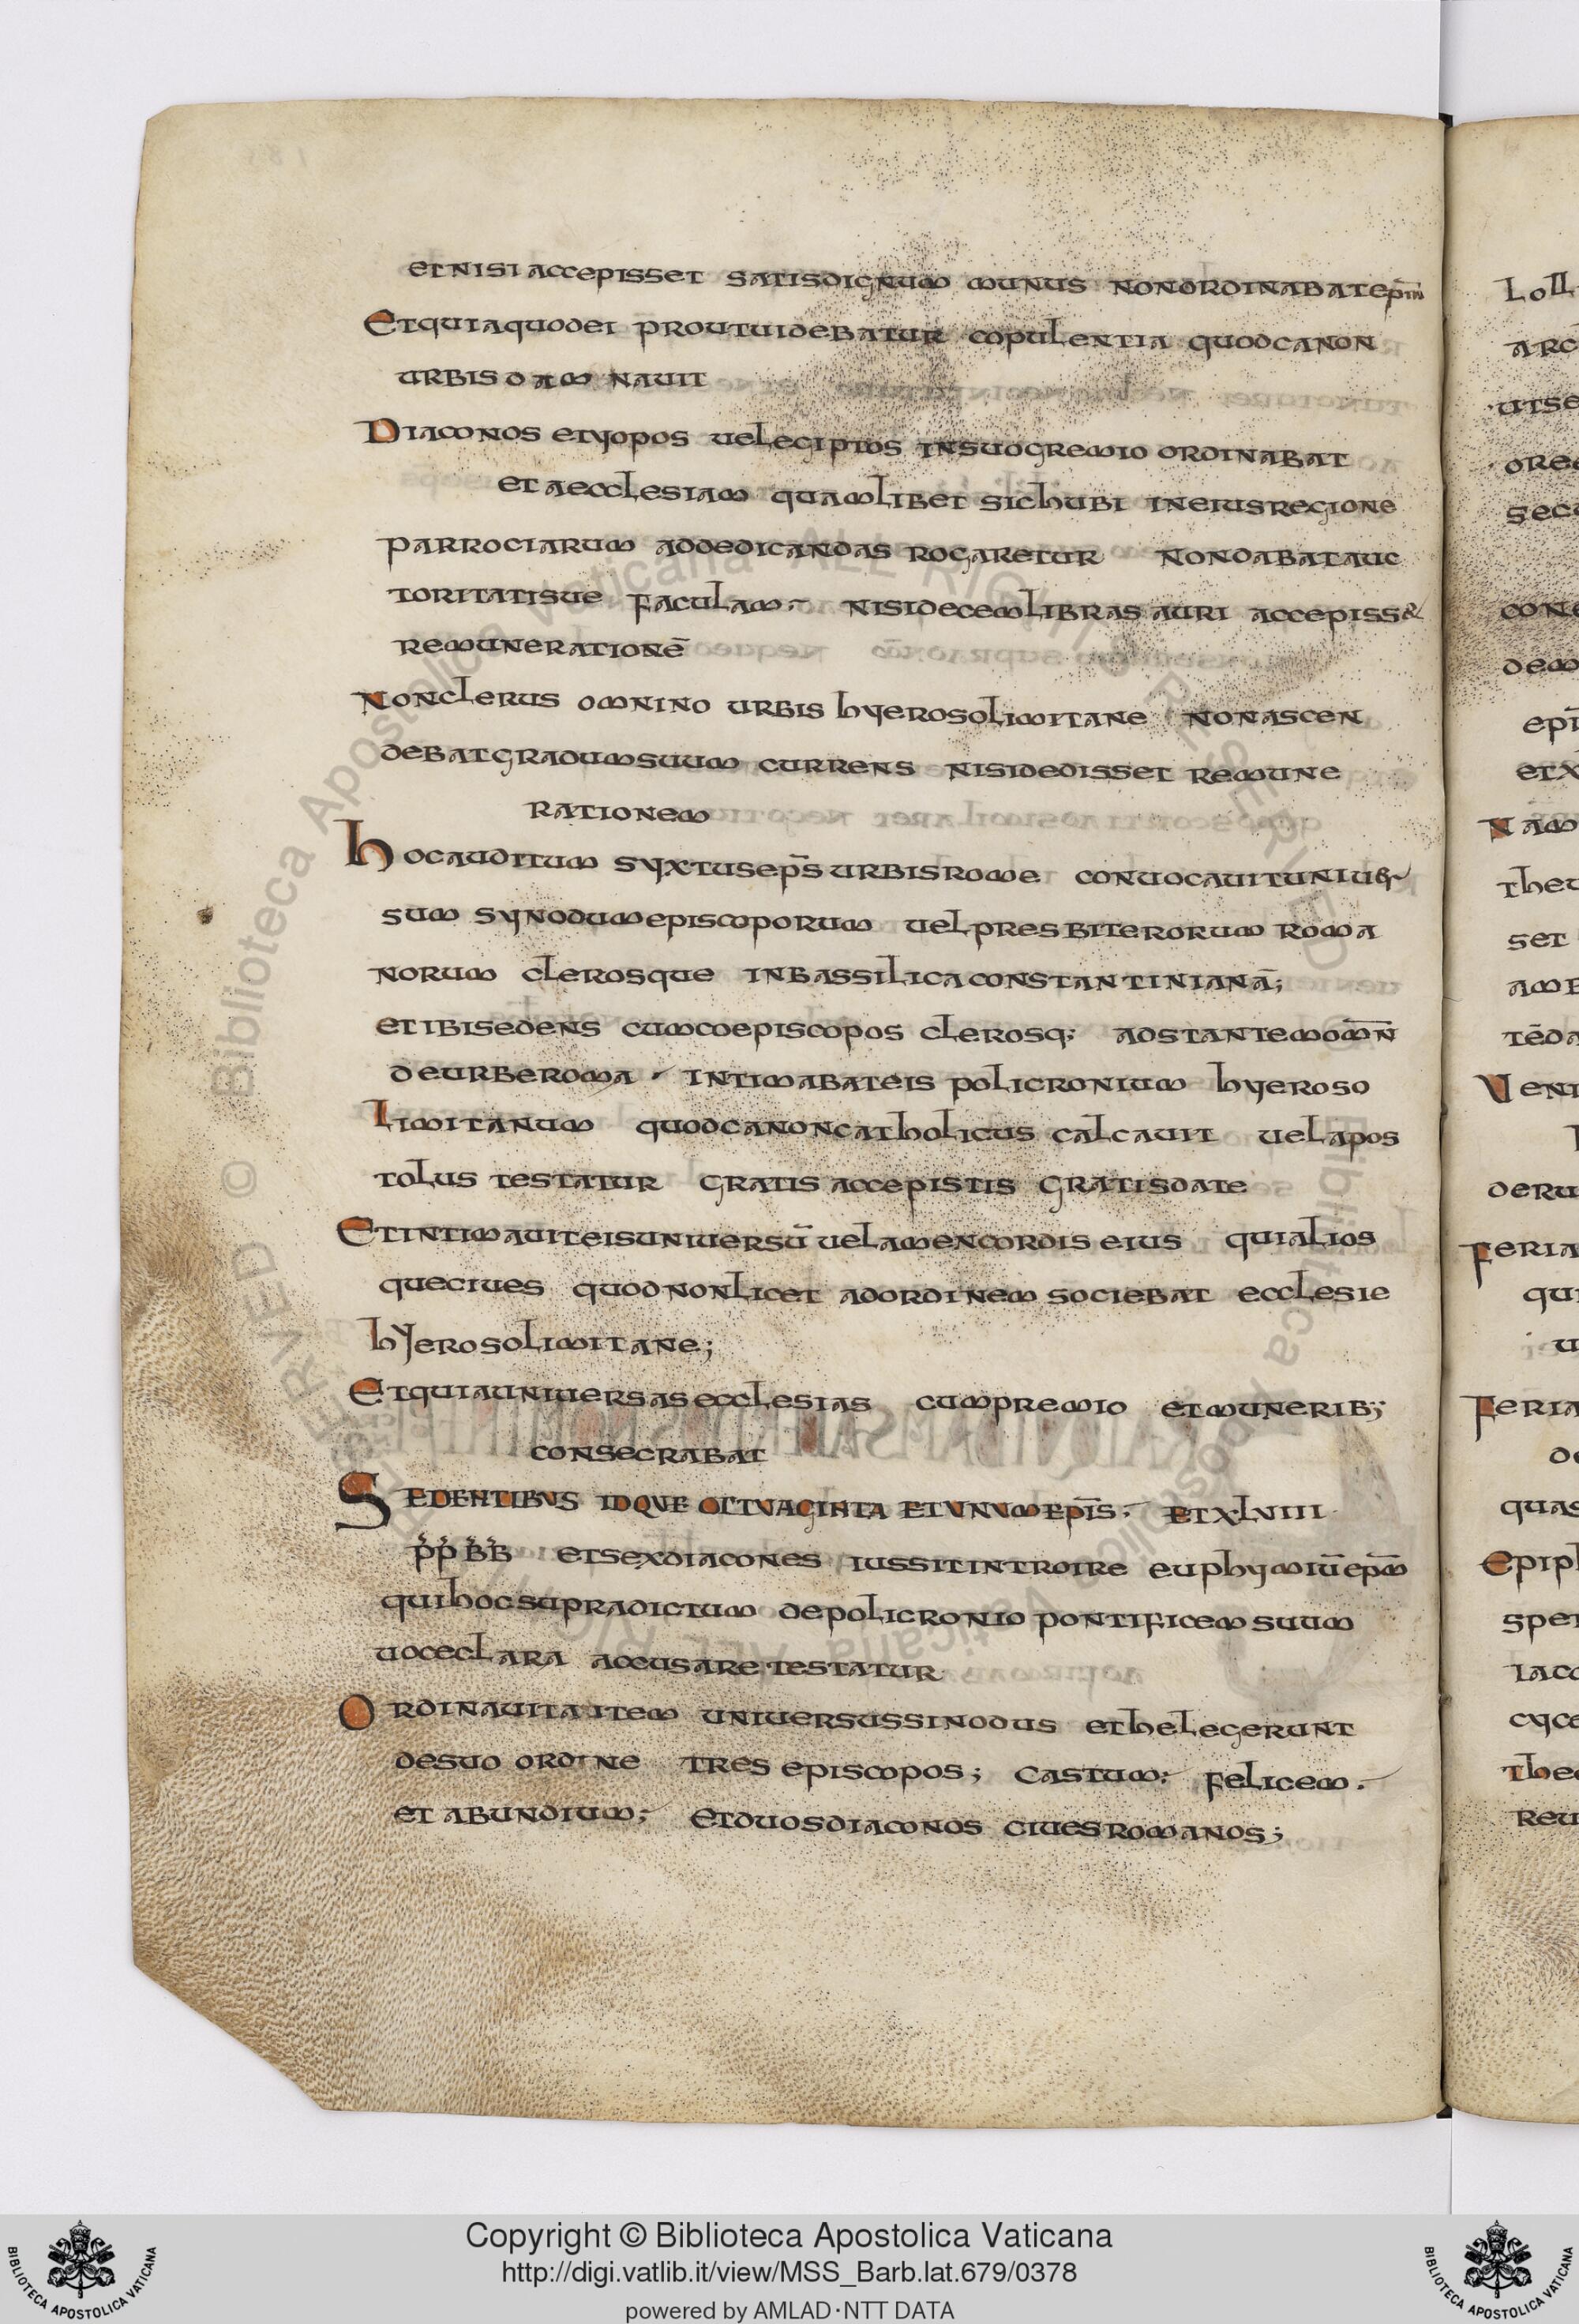 et nisi accepisset satis dignum munus non ordinabat ep̄m
Et quia quod ei prout uidebatur copulentia quod canon
urbis damnauit
Diaconos et ypopos uel egiptios in suo gremio ordinabat
et a ecclesiam quamlibet sic hubi in eius regione
parrociarum ad dedicandas rogaretur non dabat auc
toritatisue faculam. nisi decem libras auri accepiss&
remunerationē
Non clerus omnino urbis hyerosolimitane non ascen
debat gradum suum currens nisi dedisset remune
rationem
hoc auditum syxtus ep̄s urbis rome conuocauit uniuer
sum synodum episcoporum uel presbiterorum roma
norum clerosque in bassilica constantinianā;
et ibi sedens cum coepiscopos clerosq; adstantem om̄n
de urbe roma. intimabat eis policronium hyeroso
limitanum quod canon catholicus calcauit uel apos
tolus testatur gratis accepistis gratis date
Et intimauit eis uniuersū uelamen cordis eius qui alios
que ciues quod non licet ad ordinem sociebat ecclesie
hyerosolimitane;
Et quia uniuersas ecclesias cum premio et munerib;
consecrabat
Sedentibus idque octuaginta et unum ep̄is. et xlviii
p̄p̄ b̄b̄ et sex diacones iussit introire euphymiū ep̄m
qui hoc supradictum de policronio pontificem suum
uoce clara accusare testatur
Ordinauit aitem uniuersus sinodus et helegerunt
de suo ordine tres episcopos; castum. felicem.
et abundium; et duos diaconos ciues romanos;
Loll
arc
ut se
ore
secu
con
dem
ep̄i
et x
Nam
theu
set
amb
tēda
Veni
deru
feria
qui
u
Feria
de
quas
Epiph
sper
iaco
cyce
theo
reu
© Biblioteca Apostolica Vaticana ALL RIGHTS RESERVED
Copyright © Biblioteca Apostolica Vaticana
http://digi.vatlib.it/view/MSS_Barb.lat.679/0378
powered by AMLAD･NTT DATA
BIBLIOTECA APOSTOLICA VATICANA
BIBLIOTECA APOSTOLICA VATICANA